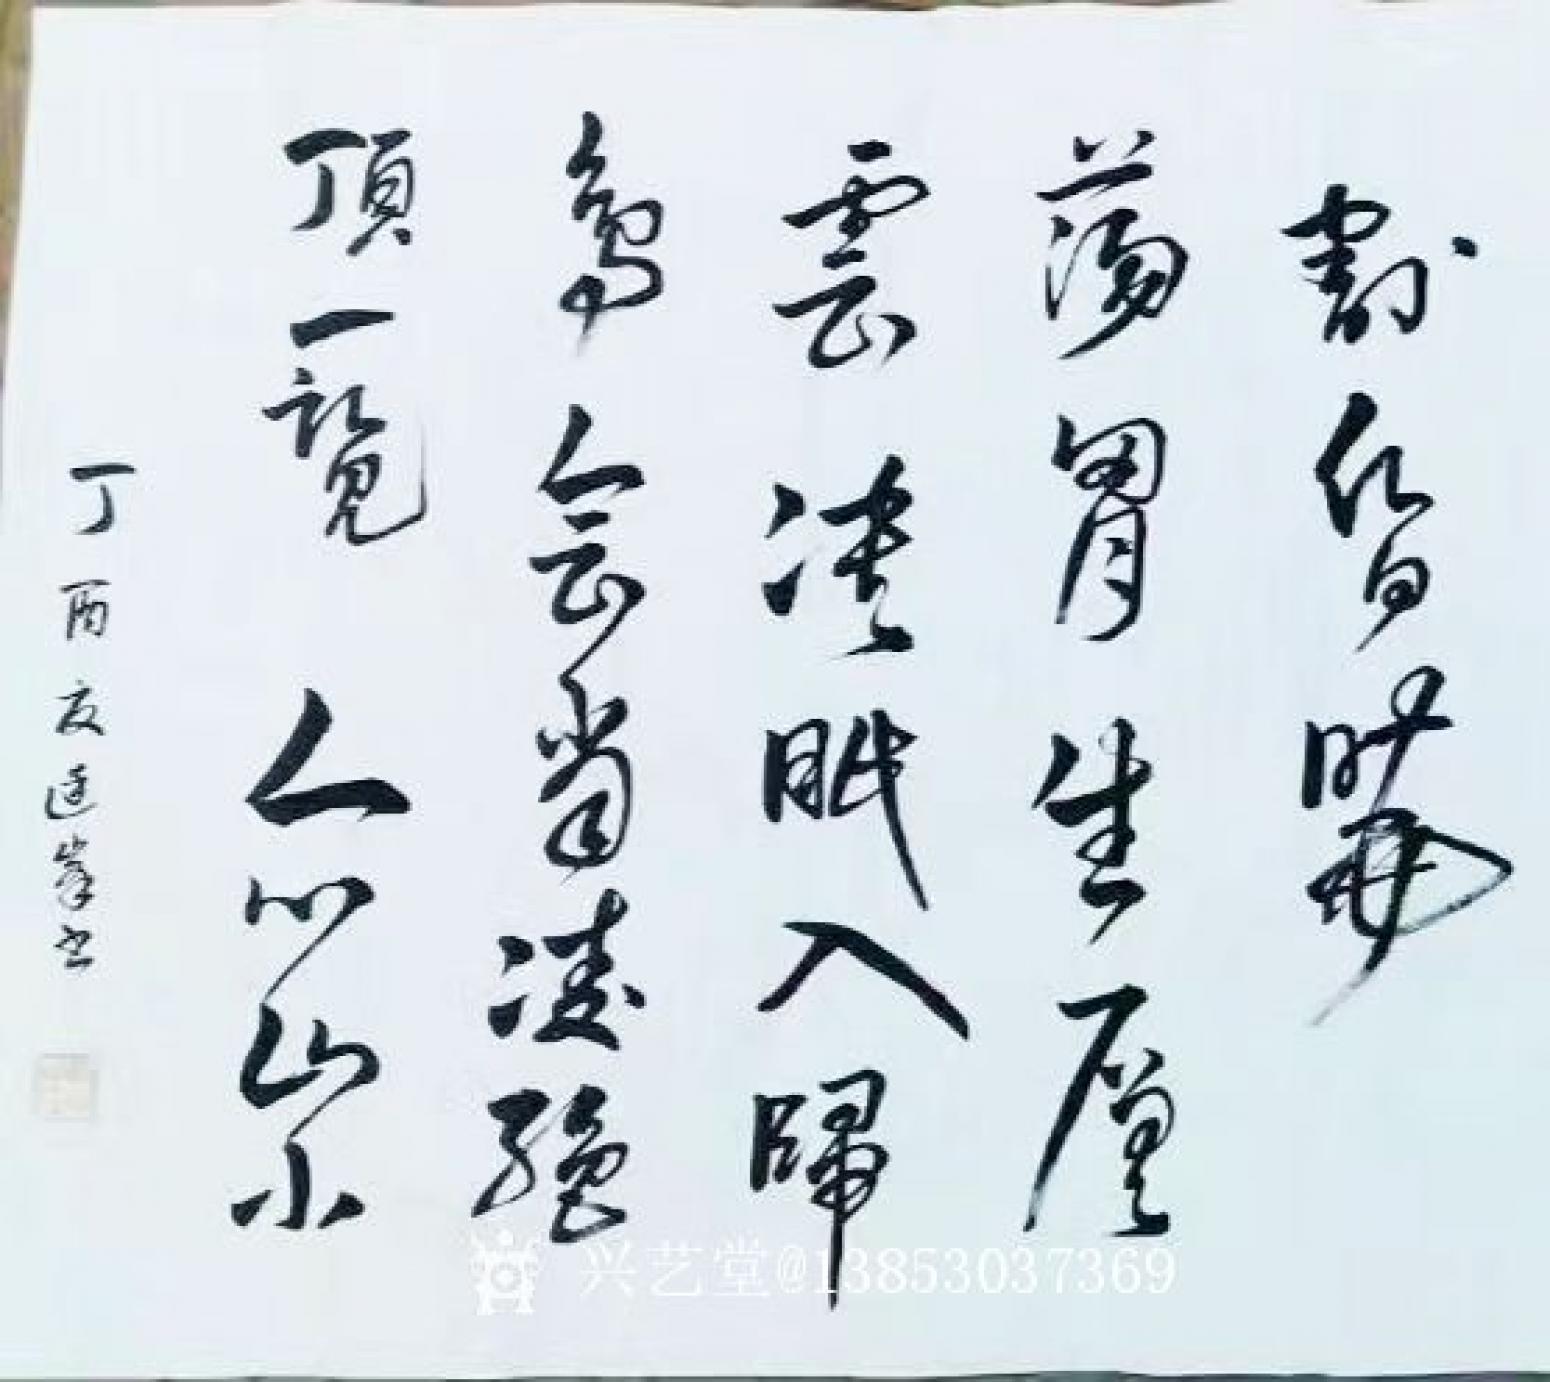 割昏曉
蕩胷生層
雲決眦入歸
鳥会當凌絶
頂一覽众山小
丁酉夏连峯书
兴艺堂@13853037369